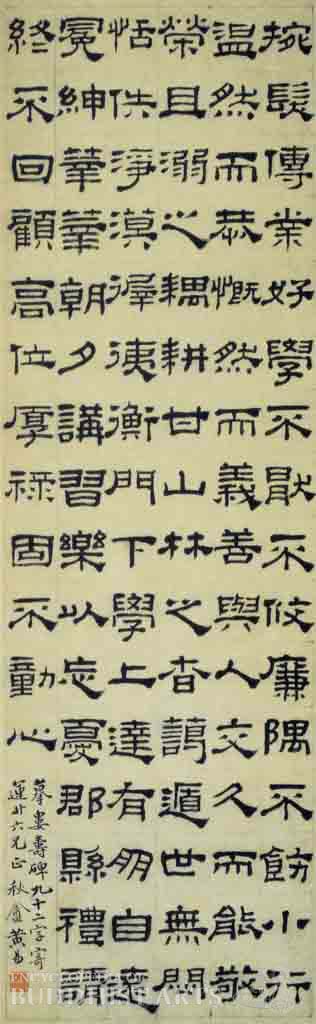 捥髮傳業好學不猒不攸廉隅不飭小行
溫然而恭慨然而義善與人交久而能敬
榮且溺之耦耕甘山林之杳藹遁世無悶
恬佚淨漠徲衡門下學上達有朋自遠
冕紳莘莘朝夕講習樂以忘憂郡縣禮請
終不回顧高位厚祿固不動心
摹婁壽碑九十二字寄
六兄正秋盦黃易
ENCYCLOPEDIA OF
BUDDHIST ARTS